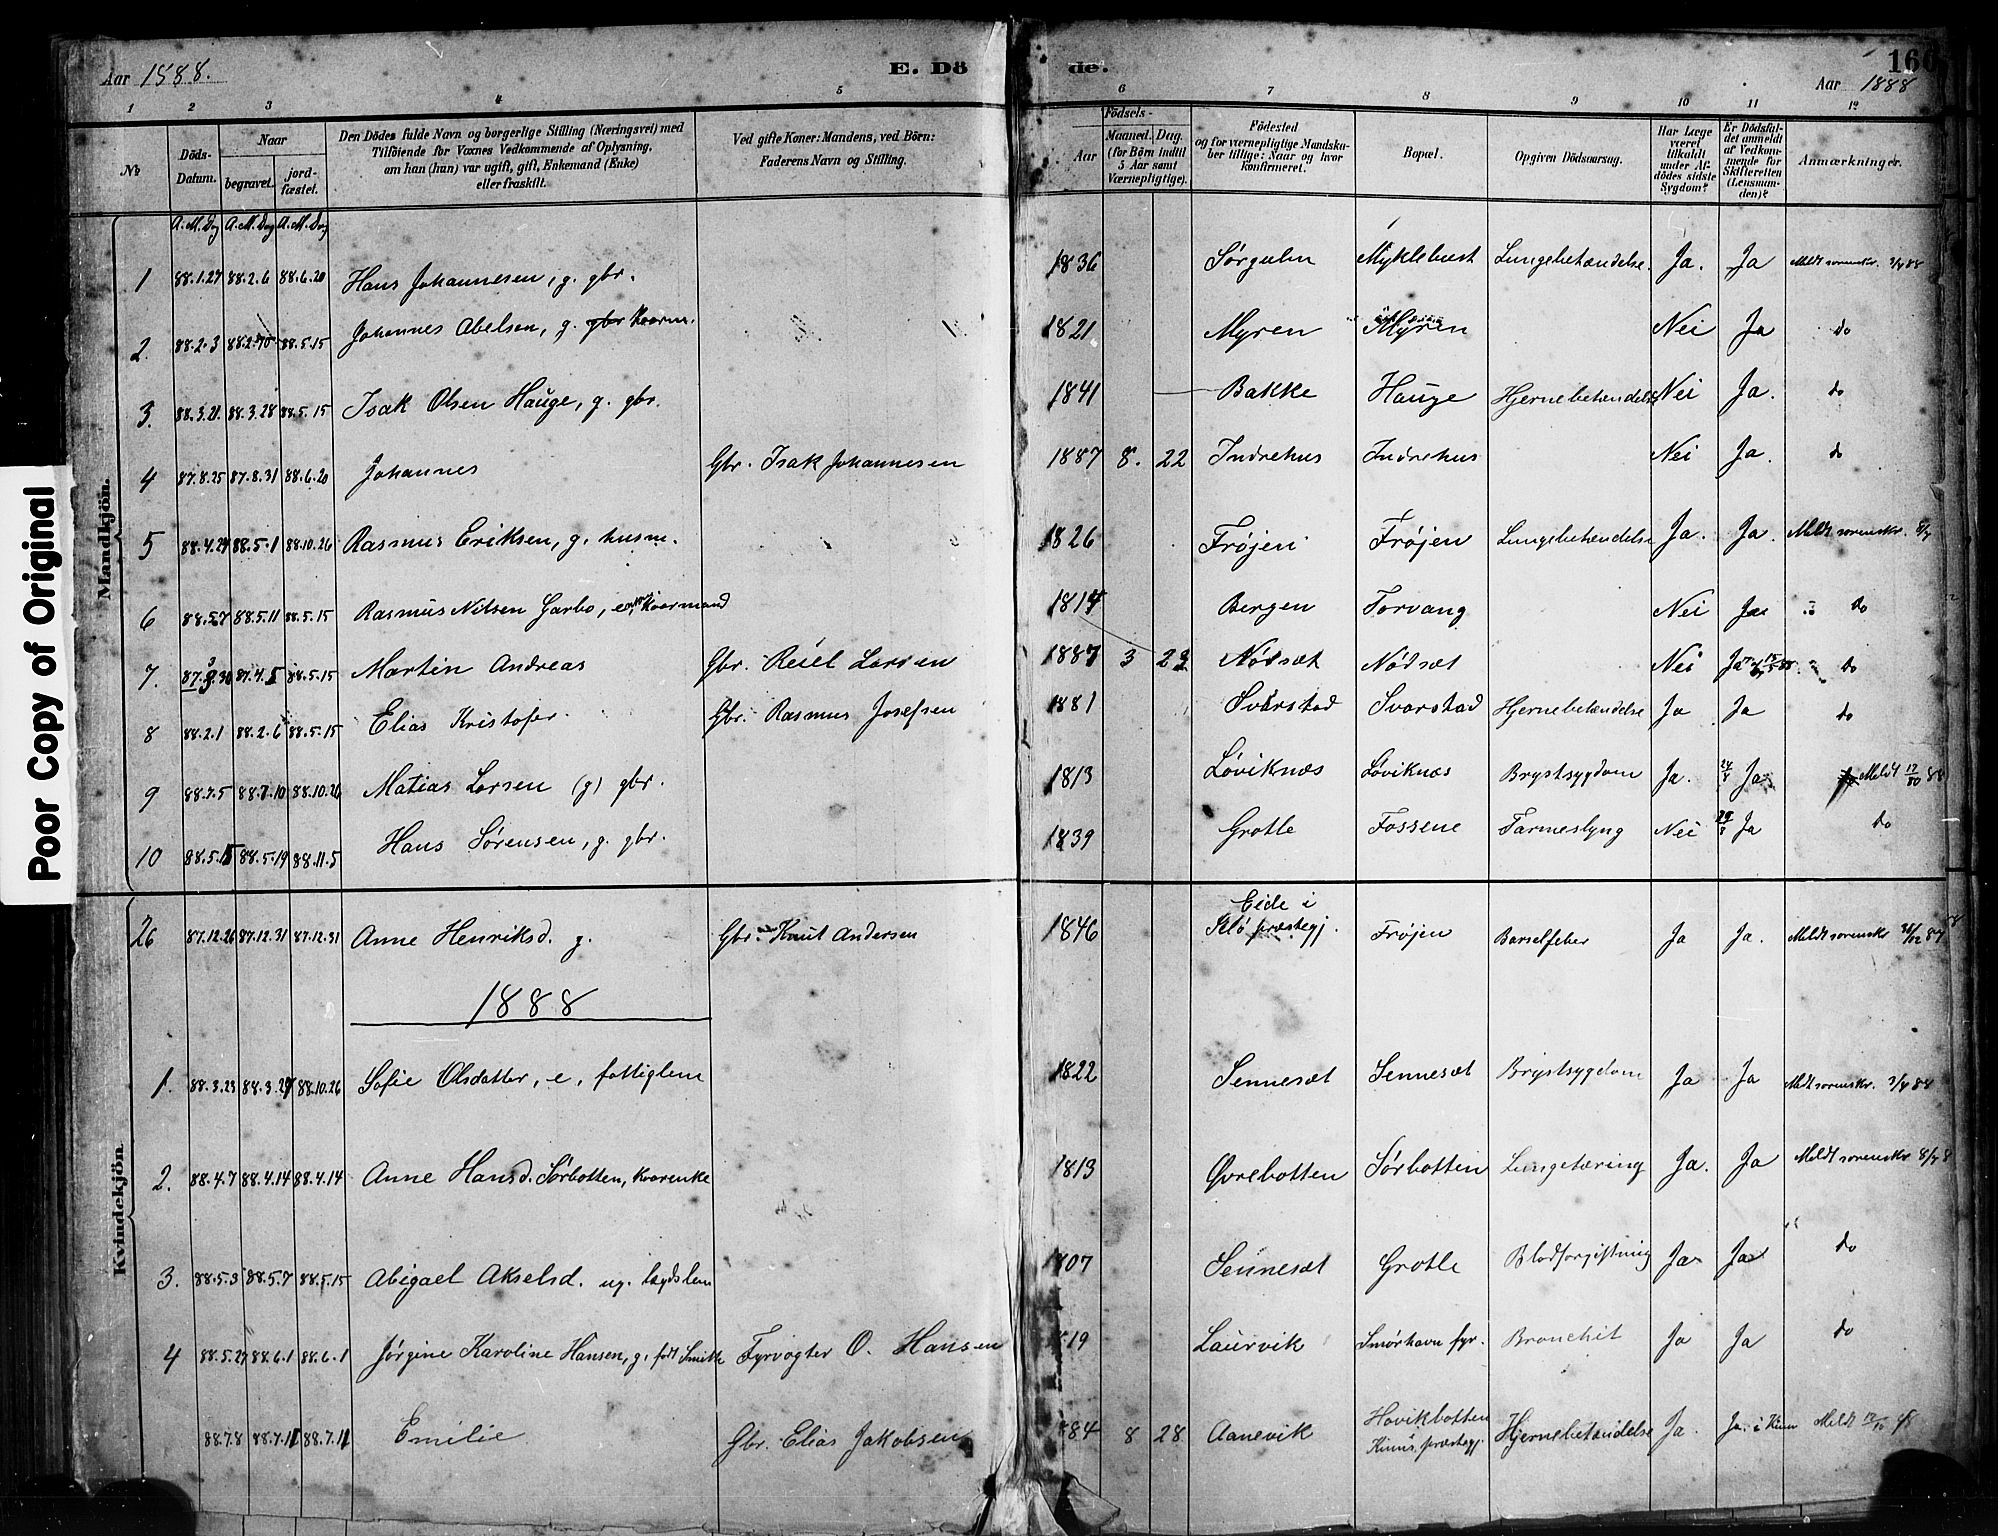 Aar 1888.
E. Dö
de.
166
Aar 1888
1 2 3 4 5 6 7 8 9 10 11 12
No
Döds-Datum.
Naar
begravet.
jord-fæstet.
Den Dödes fulde Navn og borgerlige Stilling (Næringsvei) med
Tilföiende for Voxnes Vedkommende af Oplysning,
om han (hun) var ugift, gift, Enkemand (Enke)
eller fraskilt.
Ved gifte Koner: Mandens, ved Börn:
Faderens Navn og Stilling.
Födsels-
Aar
Maaned. Dag.
(for Börn indtil
5 Aar samt
Værnepligtige).
Födested
og for værnepligtige Mandska-
ber tillige: Naar og hvor
konfirmeret.
Bopæl.
Opgiven Dödsaarsag.
Har Læge
været
tilkaldt
under Af-
dödes sidste
Sygdom?
Er Dödsfal-
det anmeldt
af Vedkom-
mende for
Skifteretten
(Lensman-
den)?
Anmærkninger.
A. M. Dag A. M. Dag A. M. Dag
Mandkjön.
1 88.1.27 88.2.6 88.6.20 Hans Johannesen, g. gbr. 1836 Sørgulen Myklebust Lungebetændelse. Ja. Ja Meldt sorenskr. 3/4 88
2. 88.2.3 88.2.10 88.5.15 Johannes Abelsen, g. gbr Kaarm. 1821 Myren Myren Nei Ja do
3. 88.3.21 88.3.28 88.5.15 Isak Olsen Hauge, g. gbr. 1841 Bakke Hauge Hjernebetændelse Nei Ja. do
4 87.8.25 87.8.31 88.6.20 Johannes Gbr. Isak Johannesen 1887 8. 22 Indrehus Indrehus Nei Ja. do
5 88.4.24 88.5.1 88.10.26 Rasmus Eriksen, g. husm. 1826 Frøjen Frøjen Lungebetændelse Ja. Ja. Meldt sorenskr. 8/7
6 88.5.7 88.5.11 88.5.15 Rasmus Nilsen Garbo, Kaarmand 1814 Bergen Torvang Nei Ja do
7. 87.3.30 87.4.5 88.5.15 Martin Andreas Gbr. Reiel Larsen 1887 3 23 Nødsæt Nødsæt Nei Ja do
8 88.2.1 88.2.6 88.5.15 Elias Kristofer. Gbr. Rasmus Josefsen 1881 Svarstad Svarstad Hjernebetændelse Ja Ja do
9 88.7.5 88.7.10 88.10.26 Matias Larsen (g) gbr. 1813 Løviknæs Løviknæs Brystsygdom Ja. 24/8 Ja Meldt 12/10 88
10 88.5.15 88.5.19 88.11.5 Hans Sørensen, g. gbr. 1839 Grotle Fossene Tarmeslyng Nei 29/8 Ja do
Kvindekjön.
26 87.12.26 87.12.31 87.12.31 Anne Henriksd. g. Gbr. Knut Andersen 1846 Eide i
Klø præstegj. Frøjen Barselfeber Ja Ja. Meldt sorenskr 31/12 87
1888
1. 88.3.23 88.3.29 88.10.26 Sofie Olsdatter, e, fattiglem 1822 Sennesæt Sennesæt Brystsygdom Ja Ja Meldt sorenskr. 3/4 88
2. 88.4.7 88.4.14 88.4.14 Anne Hansd. Sørbotten, Kaarenke 1813 Øvrebotten Sørbotten Lungetæring Ja. Ja Meldt sorenskr 8/7 8
3. 88.5.3 88.5.7 88.5.15 Abigael Akselsd. ug. lægdslem 1807 Sennesæt Grotle Blodforgiftning Ja Ja do
4 88.5.27 88.6.1 88.6.1 Jørgine Karoline Hansen, g. født Smith Fyrvogter O. Hansen 19 Laurvik Smørhavn fyr. Bronchit Ja Ja do
88.7.8 88.7.11 88.7.11 Emilie Gbr. Elias Jakobsen 884 8 28 Aanevik Hovikbotten
Kinns præstegj. Hjernebetændelse Ja. Ja. i Kinn Meldt 12/10 88
Poor Copy of Original